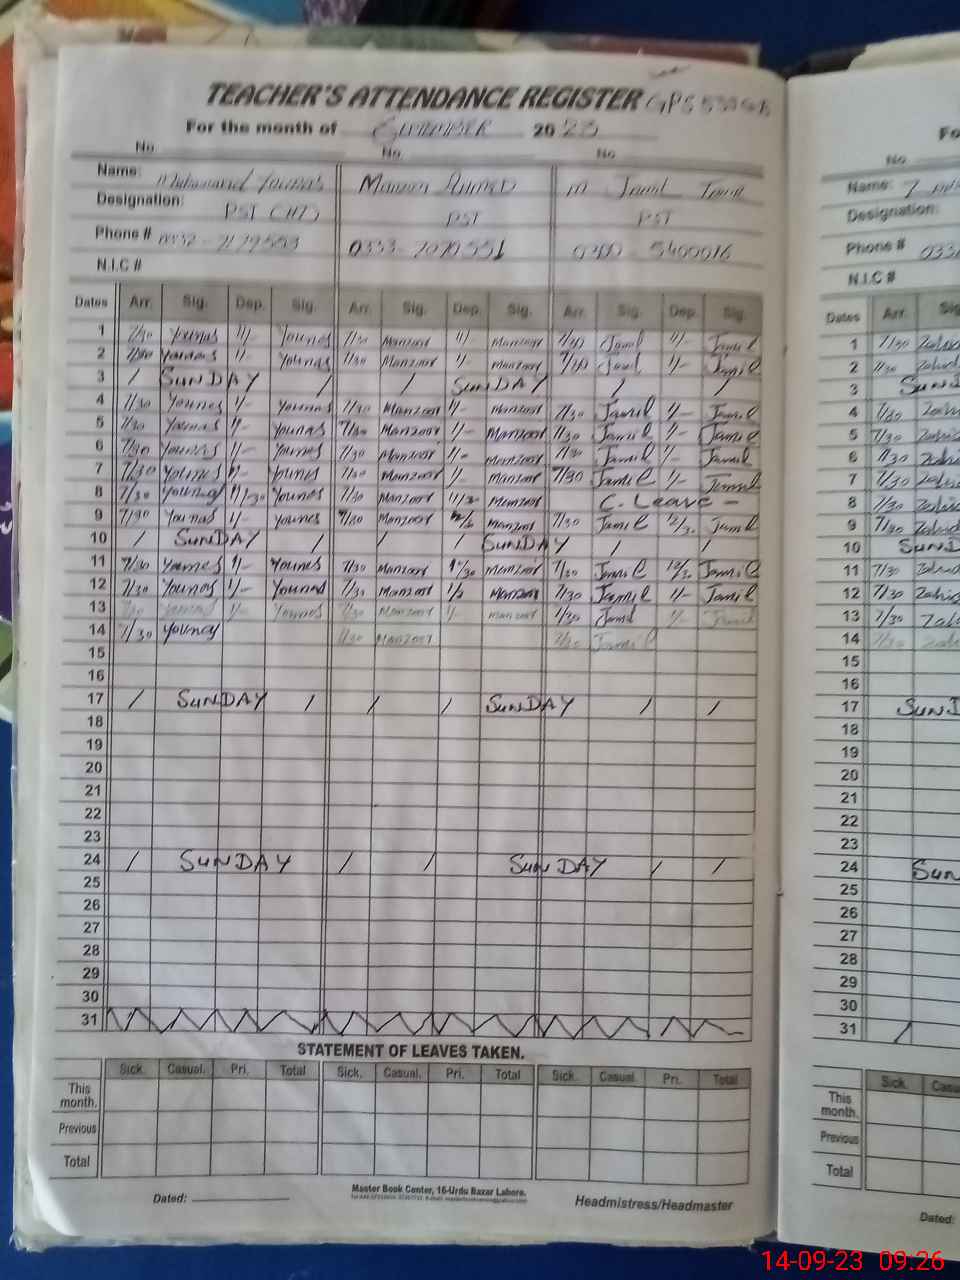 TEACHER'S ATTENDANCE REGISTER GPS
For the month of 2023
No No. No
Name: Muhammad Younas Manzoor Ahmed m Jamil
Designation: PST (HT) PST PST
Phone # 0332 - 0333- 0300 - 5400016
N.I.C #
Dates Arr. Sig. Dep. Sig. Arr. Sig. Dep. Sig. Arr. Sig. Dep. Sig.
1 7/30 Younas 1/- Younas 7/30 Manzoor 1/- Manzoor 7/30 Jamil 1/- Jamil
2 7/30 Younas 1/- Younas 7/30 Manzoor 1/- Manzoor 7/30 Jamil 1/- Jamil
3 / SUNDAY / / SUNDAY / /
4 7/30 Younas 1/- Younas 7/30 Manzoor 1/- Manzoor 7/30 Jamil 1/- Jamil
5 7/30 Younas 1/- Younas 7/30 Manzoor 1/- Manzoor 7/30 Jamil 1/- Jamil
6 7/30 Younas 1/- Younas 7/30 Manzoor 1/- Manzoor 7/30 Jamil 1/- Jamil
7 7/30 Younas 1/- Younas 7/30 Manzoor 1/- Manzoor 7/30 Jamil 1/- Jamil
8 7/30 Younas 11/30 Younas 7/30 Manzoor 11/30 Manzoor C. Leave -
9 7/30 Younas 1/- Younas 7/30 Manzoor Manzoor 7/30 Jamil Jamil
10 / SUNDAY / / / SUNDAY / /
11 7/30 Younas 1/- Younas 7/30 Manzoor Manzoor 7/30 Jamil Jamil
12 7/30 Younas 1/- Younas 7/30 Manzoor Manzoor 7/30 Jamil 1/- Jamil
13 7/30 Younas 1/- Younas 7/30 Manzoor 1/- Manzoor 7/30 Jamil 1/- Jamil
14 7/30 Younas 7/30 Manzoor 7/30 Jamil
15
16
17 / SUNDAY / / / SUNDAY / /
18
19
20
21
22
23
24 / SUNDAY / / SUNDAY / /
25
26
27
28
29
30
31
STATEMENT OF LEAVES TAKEN.
Sick. Casual. Pri. Total Sick. Casual. Pri. Total Sick. Casual. Pri. Total
This month.
Previous
Total
Master Book Center, 16-Urdu Bazar Lahore.
Dated: Headmistress/Headmaster
Fo
No
Name:
Designation:
Phone # 033
N.I.C #
Dates Arr. Sig
1 7/30
2 7/30
3 SUND
4 7/30
5 7/30
6 7/30
7 7/30
8 7/30
9 7/30
10 SUND
11 7/30
12 7/30
13 7/30
14 7/30
15
16
17 SUND
18
19
20
21
22
23
24 SUN
25
26
27
28
29
30
31 /
Sick. Casu
This month.
Previous
Total
Dated:
14-09-23 09:26